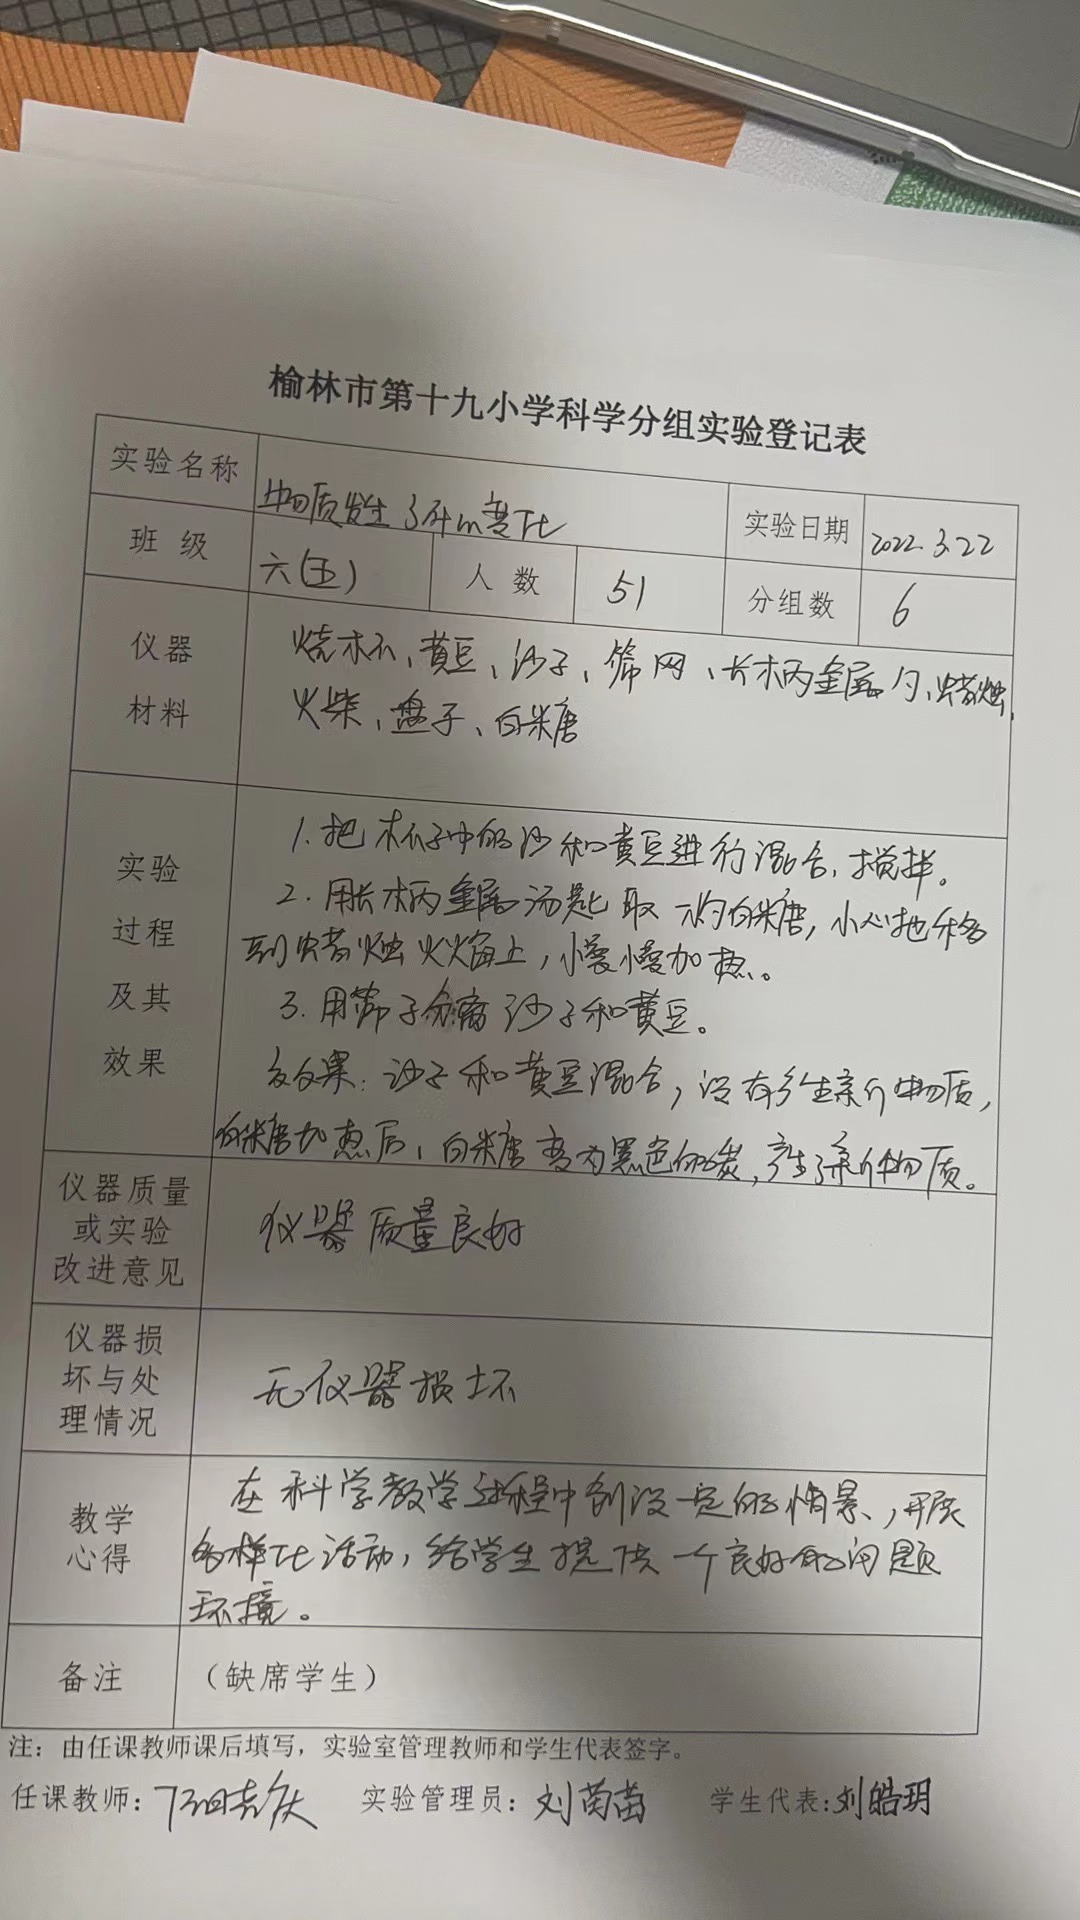 榆林市第十九小学科学分组实验登记表
实验名称 物质发生了什么变化 实验日期 2022.3.22
班级 六(五) 人数 51 分组数 6
仪器材料 烧杯、黄豆、沙子、筛网、长柄金属勺、蜡烛、
火柴、盘子、白糖
实验过程及其效果
1.把杯子中的沙和黄豆进行混合,搅拌。
2.用长柄金属汤匙取一勺白糖,小心地移
到蜡烛火焰上,慢慢加热。
3.用筛子分离沙子和黄豆。
效果:沙子和黄豆混合,没有产生新的物质,
白糖加热后,白糖变为黑色的炭,产生了新的物质。
仪器质量
或实验
改进意见
仪器质量良好
仪器损
坏与处
理情况
无仪器损坏
教学
心得
在科学教学过程中创设一定的情景,开展
多样化活动,给学生提供一个良好的问题
环境。
备注 (缺席学生)
注:由任课教师课后填写,实验室管理教师和学生代表签字。
任课教师: 实验管理员:刘茵苗 学生代表:刘皓玥